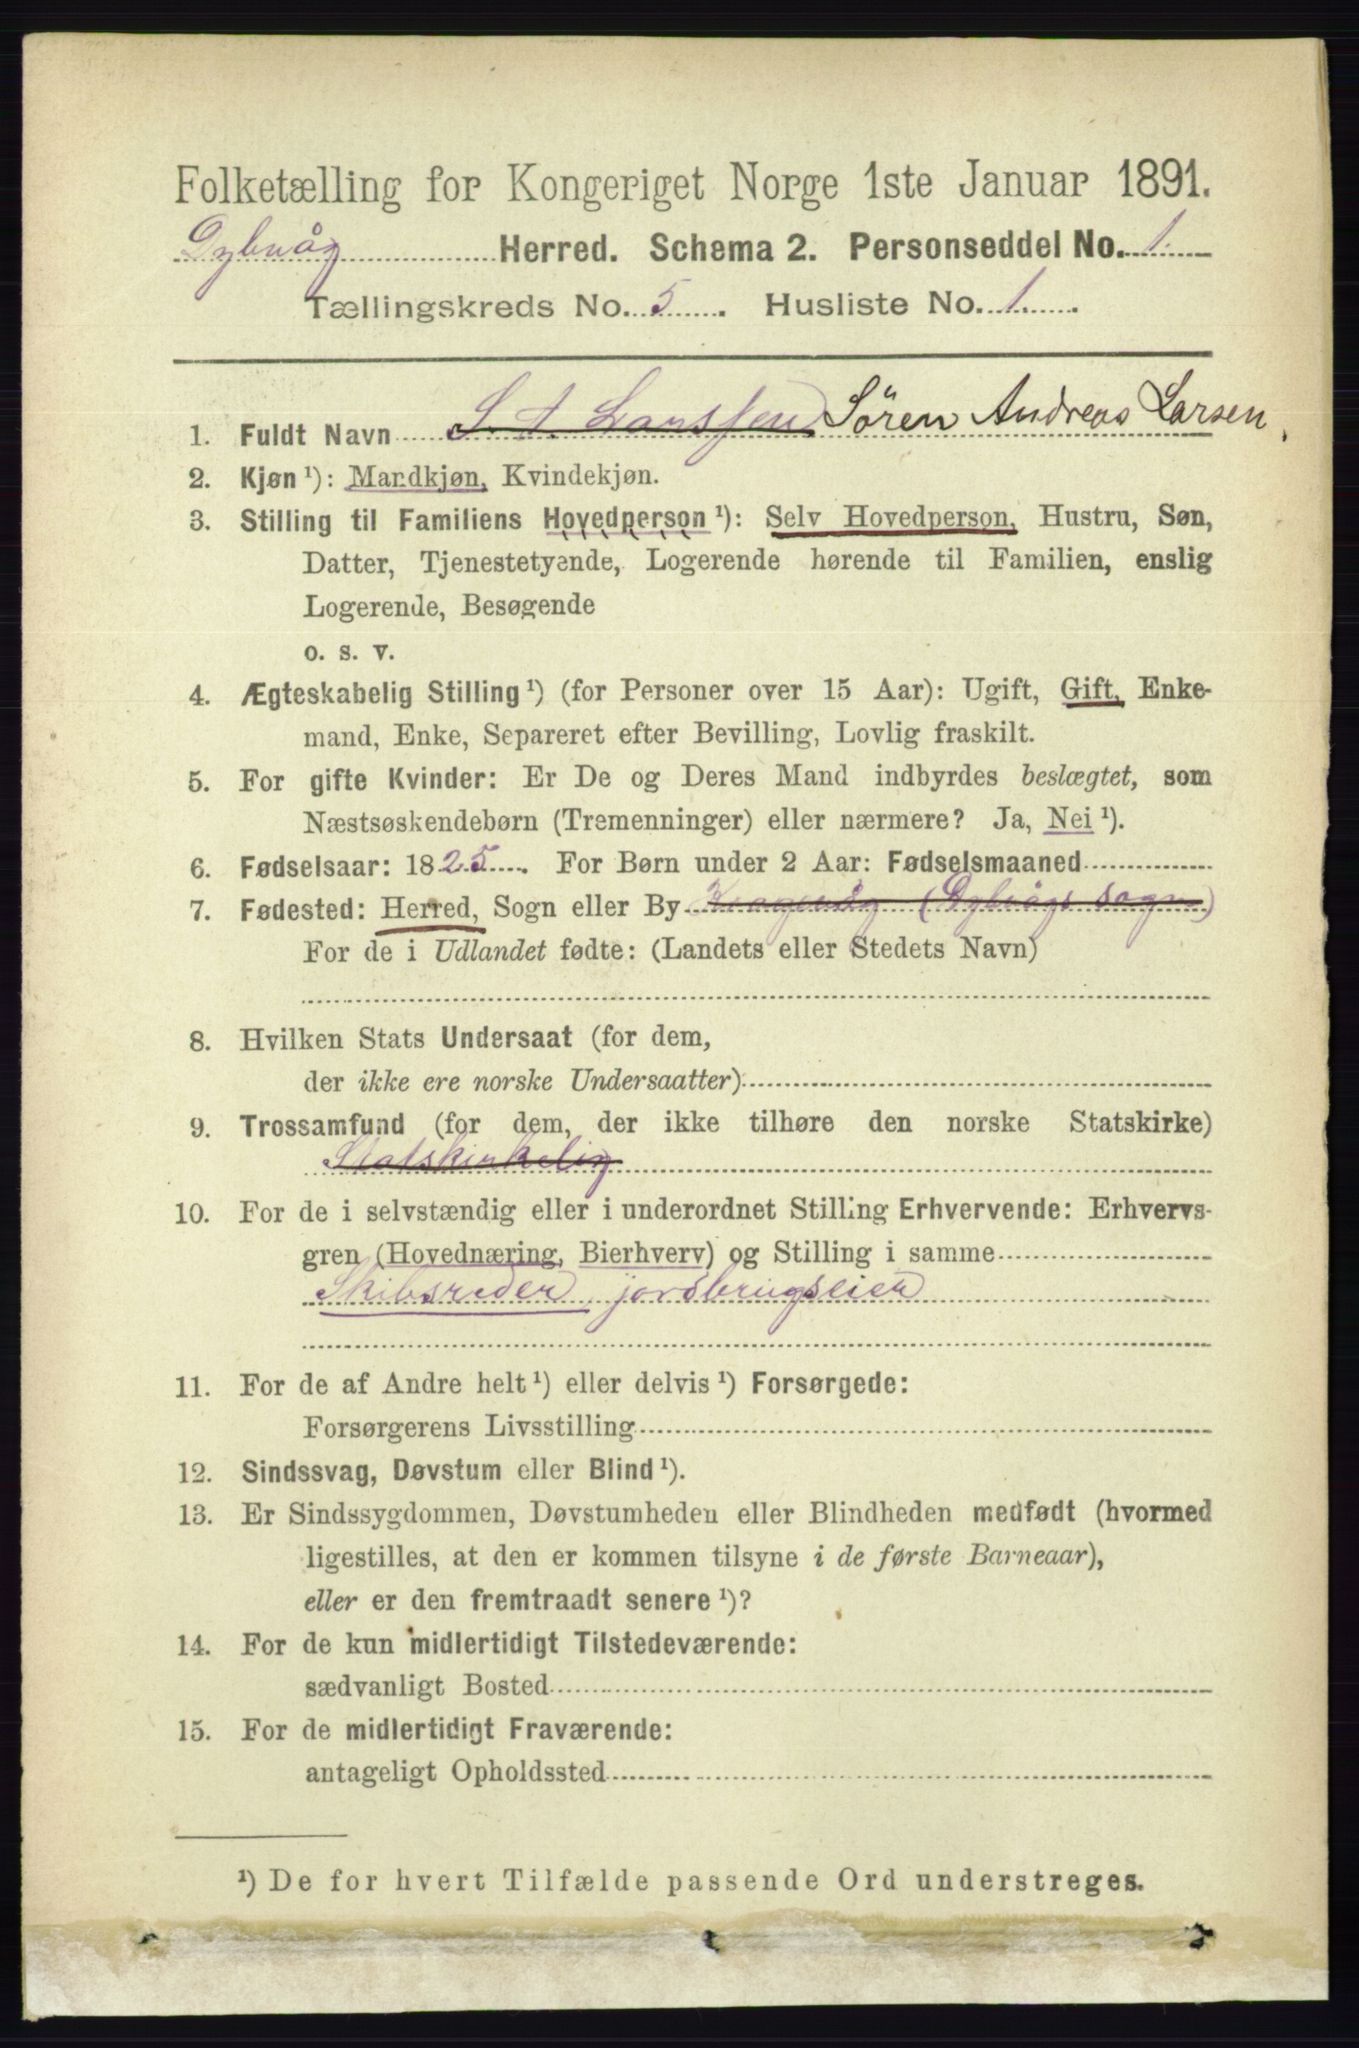 Folketælling for Kongeriget Norge 1ste Januar 1891.
Dybvåg Herred. Schema 2. Personseddel No. 1.
Tællingskreds No. 5. Husliste No. 1.
1. Fuldt Navn S. A. Larssen Sören Andreas Larsen
2. Kjøn ¹): Mandkjøn, Kvindekjøn.
3. Stilling til Familiens Hovedperson ¹): Selv Hovedperson, Hustru, Søn,
Datter, Tjenestetyende, Logerende hørende til Familien, enslig
Logerende, Besøgende
o. s. v.
4. Ægteskabelig Stilling ¹) (for Personer over 15 Aar): Ugift, Gift, Enke-
mand, Enke, Separeret efter Bevilling, Lovlig fraskilt.
5. For gifte Kvinder: Er De og Deres Mand indbyrdes beslægtet, som
Næstsøskendebørn (Tremenninger) eller nærmere? Ja, Nei ¹).
6. Fødselsaar: 1825. For Børn under 2 Aar: Fødselsmaaned
7. Fødested: Herred, Sogn eller By (Dybvågs sogn)
For de i Udlandet fødte: (Landets eller Stedets Navn)
8. Hvilken Stats Undersaat (for dem,
der ikke ere norske Undersaatter)
9. Trossamfund (for dem, der ikke tilhøre den norske Statskirke)
Statskirkelig
10. For de i selvstændig eller i underordnet Stilling Erhvervende: Erhvervs-
gren (Hovednæring, Bierhverv) og Stilling i samme
Skibsreder, jordbrugseier
11. For de af Andre helt ¹) eller delvis ¹) Forsørgede:
Forsørgerens Livsstilling
12. Sindssvag, Døvstum eller Blind ¹).
13. Er Sindssygdommen, Døvstumheden eller Blindheden medfødt (hvormed
ligestilles, at den er kommen tilsyne i de første Barneaar),
eller er den fremtraadt senere ¹)?
14. For de kun midlertidigt Tilstedeværende:
sædvanligt Bosted
15. For de midlertidigt Fraværende:
antageligt Opholdssted
¹) De for hvert Tilfælde passende Ord understreges.